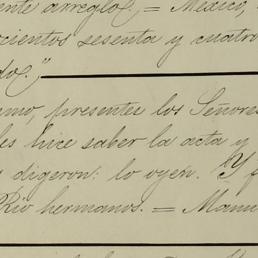 ente arreglo, = Mexico,
cientos sesenta y cuatro
do."
smo, presentes los Señores
les hice saber la acta y
s digeron: lo oyen. Y f
Rio hermanos. = Manu